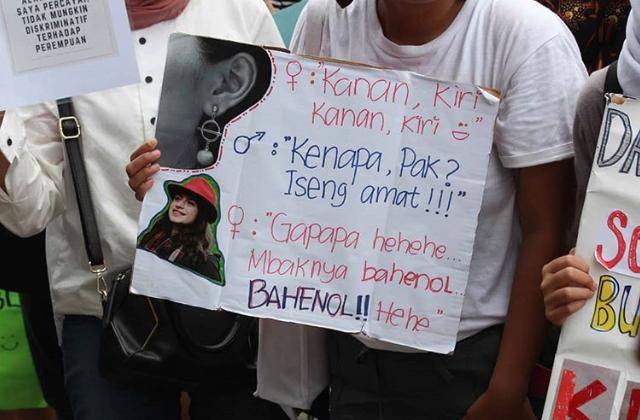 SAYA PERCAYA,
TIDAK MUNGKIN
DISKRIMINATIF
TERHADAP
PEREMPUAN
♀ : "Kanan, Kiri
Kanan, Kiri "
♂ : "Kenapa, Pak?
Iseng amat!!!"
♀ : "Gapapa hehehe...
Mbaknya bahenol..
BAHENOL!! Hehe"